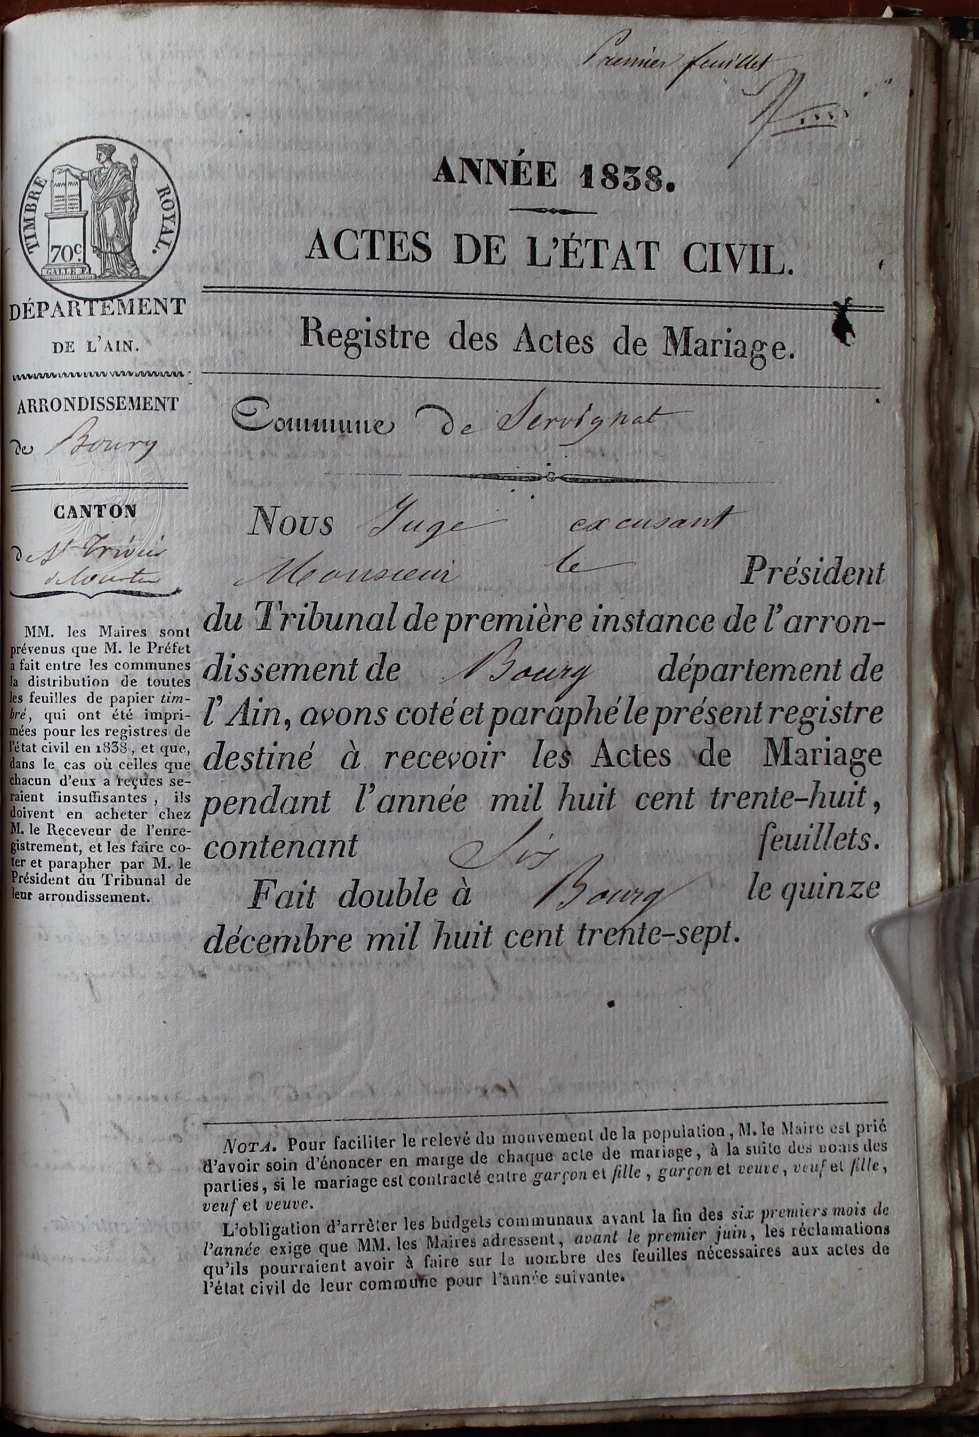 Premier feuillet
TIMBRE ROYAL.
70c
DÉPARTEMENT
DE L'AIN.
ARRONDISSEMENT
de Bourg
CANTON
de St Trivier
de Courtes
MM. les Maires sont
prévenus que M. le Préfet
a fait entre les communes
la distribution de toutes
les feuilles de papier tim-
bré, qui ont été impri-
mées pour les registres de
l'état civil en 1838, et que,
dans le cas où celles que
chacun d'eux a reçues se-
raient insuffisantes, ils
doivent en acheter chez
M. le Receveur de l'enre-
gistrement, et les faire co-
ter et parapher par M. le
Président du Tribunal de
leur arrondissement.
ANNÉE 1838.
ACTES DE L'ÉTAT CIVIL.
Registre des Actes de Mariage.
Commune de Servignat
Nous Juge excusant
Monsieur le Président
du Tribunal de première instance de l'arron-
dissement de Bourg département de
l'Ain, avons coté et paraphé le présent registre
destiné à recevoir les Actes de Mariage
pendant l'année mil huit cent trente-huit,
contenant Six feuillets.
Fait double à Bourg le quinze
décembre mil huit cent trente-sept.
NOTA. Pour faciliter le relevé du mouvement de la population, M. le Maire est prié
d'avoir soin d'énoncer en marge de chaque acte de mariage, à la suite des noms des
parties, si le mariage est contracté entre garçon et fille, garçon et veuve, veuf et fille,
veuf et veuve.
L'obligation d'arrêter les budgets communaux avant la fin des six premiers mois de
l'année exige que MM. les Maires adressent, avant le premier juin, les réclamations
qu'ils pourraient avoir à faire sur le nombre des feuilles nécessaires aux actes de
l'état civil de leur commune pour l'année suivante.